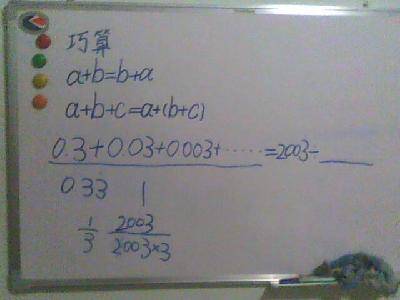 巧算
a+b=b+a
a+b+c=a+(b+c)
0.3+0.03+0.003+……=2003-____
0.33 1
1/3 2003/2003×3